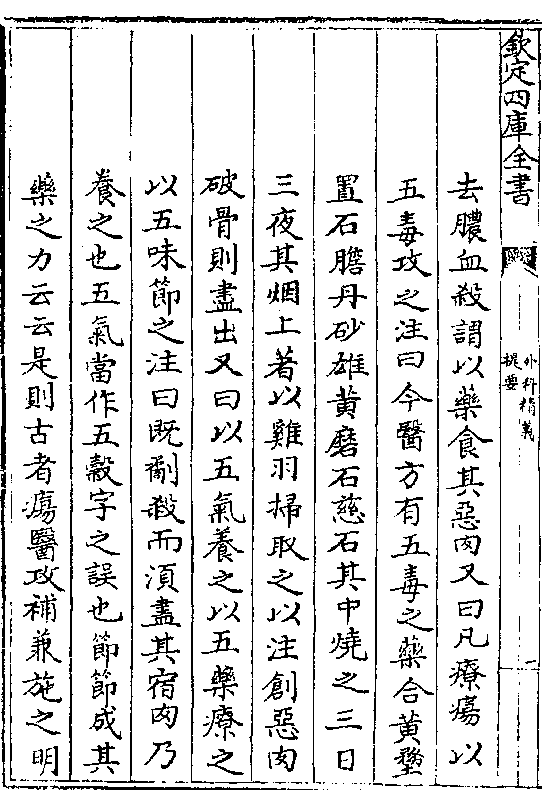 欽定四庫全書
外科精義
提要
二
去膿血殺謂以藥食其惡肉又曰凡療瘍以
五毒攻之注曰今醫方有五毒之藥合黃堥
置石膽丹砂雄黃磨石慈石其中燒之三日
三夜其烟上著以雞羽掃取之以注創惡肉
破骨則盡出又曰以五氣養之以五藥療之
以五味節之注曰既劀殺而湏盡其宿肉乃
養之也五氣當作五穀字之誤也節節成其
藥之力云云是則古者瘍醫攻補兼施之明